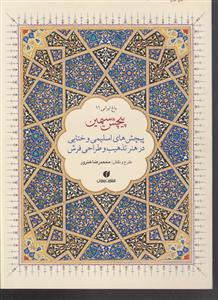 باغ ایرانی ۱۱
پیچش سیمین
پیچش‌های اسلیمی و ختایی
در هنر تذهیب و طراحی فرش
طرح و نقش: محمدرضا هنرور